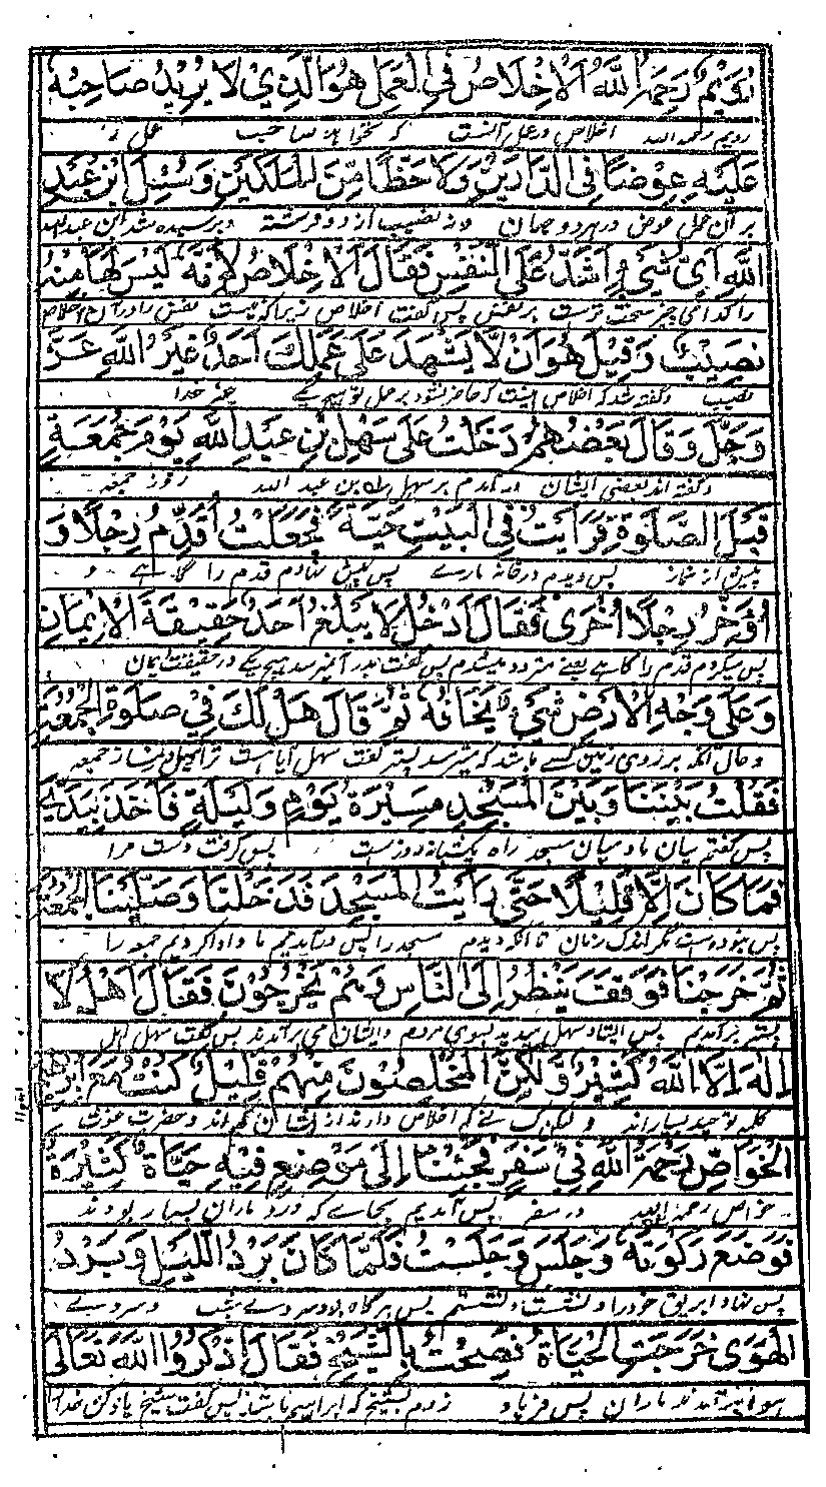 رُوَيْمٌ رَحِمَهُ اللّٰهُ اَلْاِخْلَاصُ فِي الْعَمَلِ هُوَ الَّذِيْ لَا يُرِيْدُ صَاحِبُهٗ
رویم رحمہ اللہ اخلاص در عمل آنست کہ نخواہد صاحب عمل
عَلَيْهِ عِوَضًا فِي الدَّارَيْنِ وَلَا حَظًّا مِنَ الْمَلَكَيْنِ وَسُئِلَ ابْنُ عَبْدِ
بر آن عمل عوض در ہر دو جہان و نہ نصیب از دو فرشتہ و پرسیدہ شد ابن عبد اللہ
اللّٰهِ اَيُّ شَيْءٍ اَشَدُّ عَلَى النَّفْسِ فَقَالَ الْاِخْلَاصُ لِاَنَّهٗ لَيْسَ لَهَا مِنْهُ
را کدامی چیز سخت ترست بر نفس پس گفت اخلاص زیرا کہ نیست نفس را در آن اخلاص
نَصِيْبٌ وَقِيْلَ هُوَ اَنْ لَّا يَشْهَدَ عَلٰى عَمَلِكَ اَحَدٌ غَيْرُ اللّٰهِ عَزَّ
نصیب و گفتہ شد کہ اخلاص اینست کہ حاضر نشود بر عمل تو ہیچ یکے غیر خدا
وَجَلَّ وَقَالَ بَعْضُهُمْ دَخَلْتُ عَلٰى سَهْلِ بْنِ عَبْدِ اللّٰهِ يَوْمَ جُمُعَةٍ
و گفتہ اند بعضی ایشان در آمدم بر سہل بن عبد اللہ روز جمعہ
قَبْلَ الصَّلٰوةِ فَرَاَيْتُ فِي الْبَيْتِ حَيَّةً فَجَعَلْتُ اُقَدِّمُ رِجْلًا وَ
پیش از نماز پس دیدم در خانہ مارے پس پیش نہادم قدم را گاہے و
اُؤَخِّرُ رِجْلًا اُخْرٰى فَقَالَ اُدْخُلْ لَا يَبْلُغُ اَحَدٌ حَقِيْقَةَ الْاِيْمَانِ
پس میکردم قدم را گاہے یعنے متردد میشدم پس گفت اندر آ نمیرسد ہیچ یکے در حقیقت ایمان
وَعَلٰى وَجْهِ الْاَرْضِ شَيْءٌ يَخَافُهٗ ثُمَّ قَالَ هَلْ لَكَ فِيْ صَلٰوةِ الْجُمُعَةِ
و حال آنکہ بر روی زمین کسے باشد کہ میترسد پستر گفت سہل آیا ہست ترا میل در نماز جمعہ
فَقُلْتُ بَيْنَنَا وَبَيْنَ الْمَسْجِدِ مَسِيْرَةُ يَوْمٍ وَلَيْلَةٍ فَاَخَذَ بِيَدِيْ
پس گفتم میان ما و میان مسجد راہ یکشبانہ روزست پس گرفت دست مرا
فَمَا كَانَ اِلَّا قَلِيْلًا حَتّٰى رَاَيْتُ الْمَسْجِدَ فَدَخَلْنَا وَصَلَّيْنَا الْجُمُعَةَ
پس نبودست مگر اندک زمان تا آنکہ دیدم مسجد را پس در آمدیم ما و ادا کردیم جمعہ را
ثُمَّ خَرَجْنَا فَوَقَفَ يَنْظُرُ اِلَى النَّاسِ وَهُمْ يَخْرُجُوْنَ فَقَالَ اَهْلُ لَا
پستر برآمدیم پس ایستاد سہل میدید بسوی مردم و ایشان می برآمدند پس گفت سہل اہل
اِلٰهَ اِلَّا اللّٰهُ كَثِيْرٌ وَّلٰكِنَّ الْمُخْلِصُوْنَ مِنْهُمْ قَلِيْلٌ كُنْتُ مَعَ اِبْرٰهِيْمَ
کلمہ توحید بسیار اند و لیکن کسانے کہ اخلاص دارند از ایشان کم اند و حضرت
الْخَوَّاصِ رَحِمَهُ اللّٰهِ فِيْ سَفَرٍ فَجِئْنَا اِلٰى مَوْضِعٍ فِيْهِ حَيَّاةٌ كَثِيْرَةٌ
خواص رحمہ اللہ در سفر پس آمدیم بجاے کہ درو ماران بسیار بودند
فَوَضَعَ رَكْوَتَهٗ وَجَلَسَ وَجَلَسْتُ فَلَمَّا كَانَ بَرْدُ اللَّيْلِ وَبَرْدُ
پس نہاد ابریق خود را و نشست و نشستم پس ہر گاہ بود سردے شب و سردے
الْهَوٰى خَرَجَتِ الْحَيَّاةُ فَصِحْتُ بِالشَّيْخِ فَقَالَ اُذْكُرُوا اللّٰهَ تَعَالٰى
ہوا بر آمدند ماران پس فریاد زدم بشیخ کہ ابراہیم باشد پس گفت شیخ یاد کن خدا